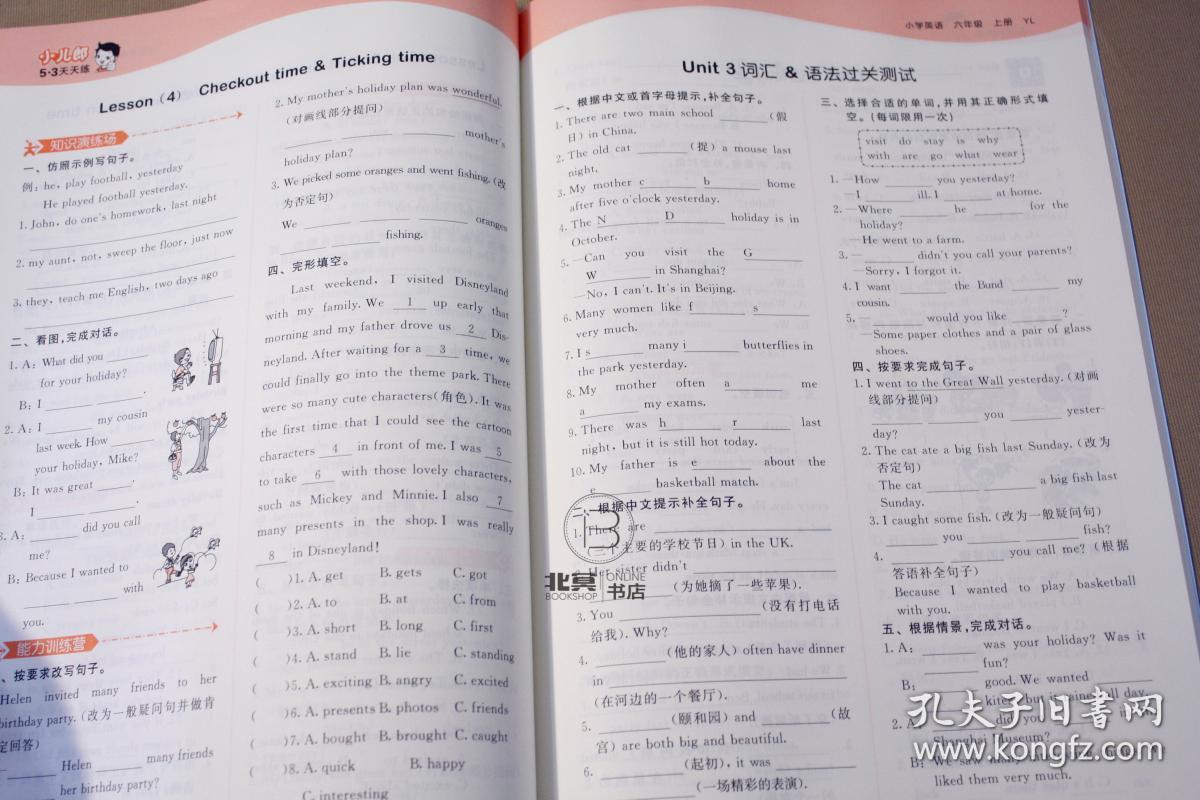 小儿郎
5·3天天练
Lesson (4) Checkout time & Ticking time
知识演练场
一、仿照示例写句子。
例:he, play football, yesterday
He played football yesterday.
1. John, do one's homework, last night
2. my aunt, not, sweep the floor, just now
3. they, teach me English, two days ago
二、看图,完成对话。
1. A: What did you
for your holiday?
B: I .
2. A: I my cousin
last week. How
your holiday, Mike?
B: It was great .
I .
3. A: did you call
me?
B: Because I wanted to
with
you.
能力训练营
、按要求改写句子。
Helen invited many friends to her
birthday party.(改为一般疑问句并做肯
定回答)
Helen many friends
her birthday party?
2. My mother's holiday plan was wonderful.
(对画线部分提问)
mother's
holiday plan?
3. We picked some oranges and went fishing.(改
为否定句)
We oranges
fishing.
四、完形填空。
Last weekend, I visited Disneyland
with my family. We 1 up early that
morning and my father drove us 2 Dis-
neyland. After waiting for a 3 time, we
could finally go into the theme park. There
were so many cute characters(角色). It was
the first time that I could see the cartoon
characters 4 in front of me. I was 5
to take 6 with those lovely characters,
such as Mickey and Minnie. I also 7
many presents in the shop. I was really
8 in Disneyland!
( )1. A. get B. gets C. got
( )2. A. to B. at C. from
( )3. A. short B. long C. first
( )4. A. stand B. lie C. standing
( )5. A. exciting B. angry C. excited
( )6. A. presents B. photos C. friends
( )7. A. bought B. brought C. caught
( )8. A. quick B. happy
C. interesting
小学英语 六年级 上册 YL
Unit 3 词汇 & 语法过关测试
一、根据中文或首字母提示,补全句子。
1. There are two main school (假
日) in China.
2. The old cat (捉) a mouse last
night.
3. My mother c b home
after five o'clock yesterday.
4. The N D holiday is in
October.
5. —Can you visit the G
W in Shanghai?
—No, I can't. It's in Beijing.
6. Many women like f s
very much.
7. I s many i butterflies in
the park yesterday.
8. My mother often a me
a my exams.
9. There was h r last
night, but it is still hot today.
10. My father is e about the
e basketball match.
二、根据中文提示补全句子。
1. There are
(三个主要的学校节日) in the UK.
2. Her sister didn't
(为她摘了一些苹果).
3. You (没有打电话
给我). Why?
4. (他的家人) often have dinner
in
(在河边的一个餐厅).
5. (颐和园) and (故
宫) are both big and beautiful.
6. (起初), it was
(一场精彩的表演).
三、选择合适的单词,并用其正确形式填
空。(每词限用一次)
visit do stay is why
with are go what wear
1. —How you yesterday?
—I ill. I at home.
2. —Where he for the
holiday?
—He went to a farm.
3. — didn't you call your parents?
—Sorry, I forgot it.
4. I want the Bund my
cousin.
5. — would you like ?
—Some paper clothes and a pair of glass
shoes.
四、按要求完成句子。
1. I went to the Great Wall yesterday.(对画
线部分提问)
you yester-
day?
2. The cat ate a big fish last Sunday.(改为
否定句)
The cat a big fish last
Sunday.
3. I caught some fish.(改为一般疑问句)
you fish?
4. you call me?(根据
答语补全句子)
Because I wanted to play basketball
with you.
五、根据情景,完成对话。
1. A: was your holiday? Was it
fun?
B: good. We wanted
kites, but it rained all day.
2. A: did you
Shanghai Museum?
B: We saw many
liked them very much.
北冥书店
ONLINE
BOOKSHOP
孔夫子旧书网
www.kongfz.com